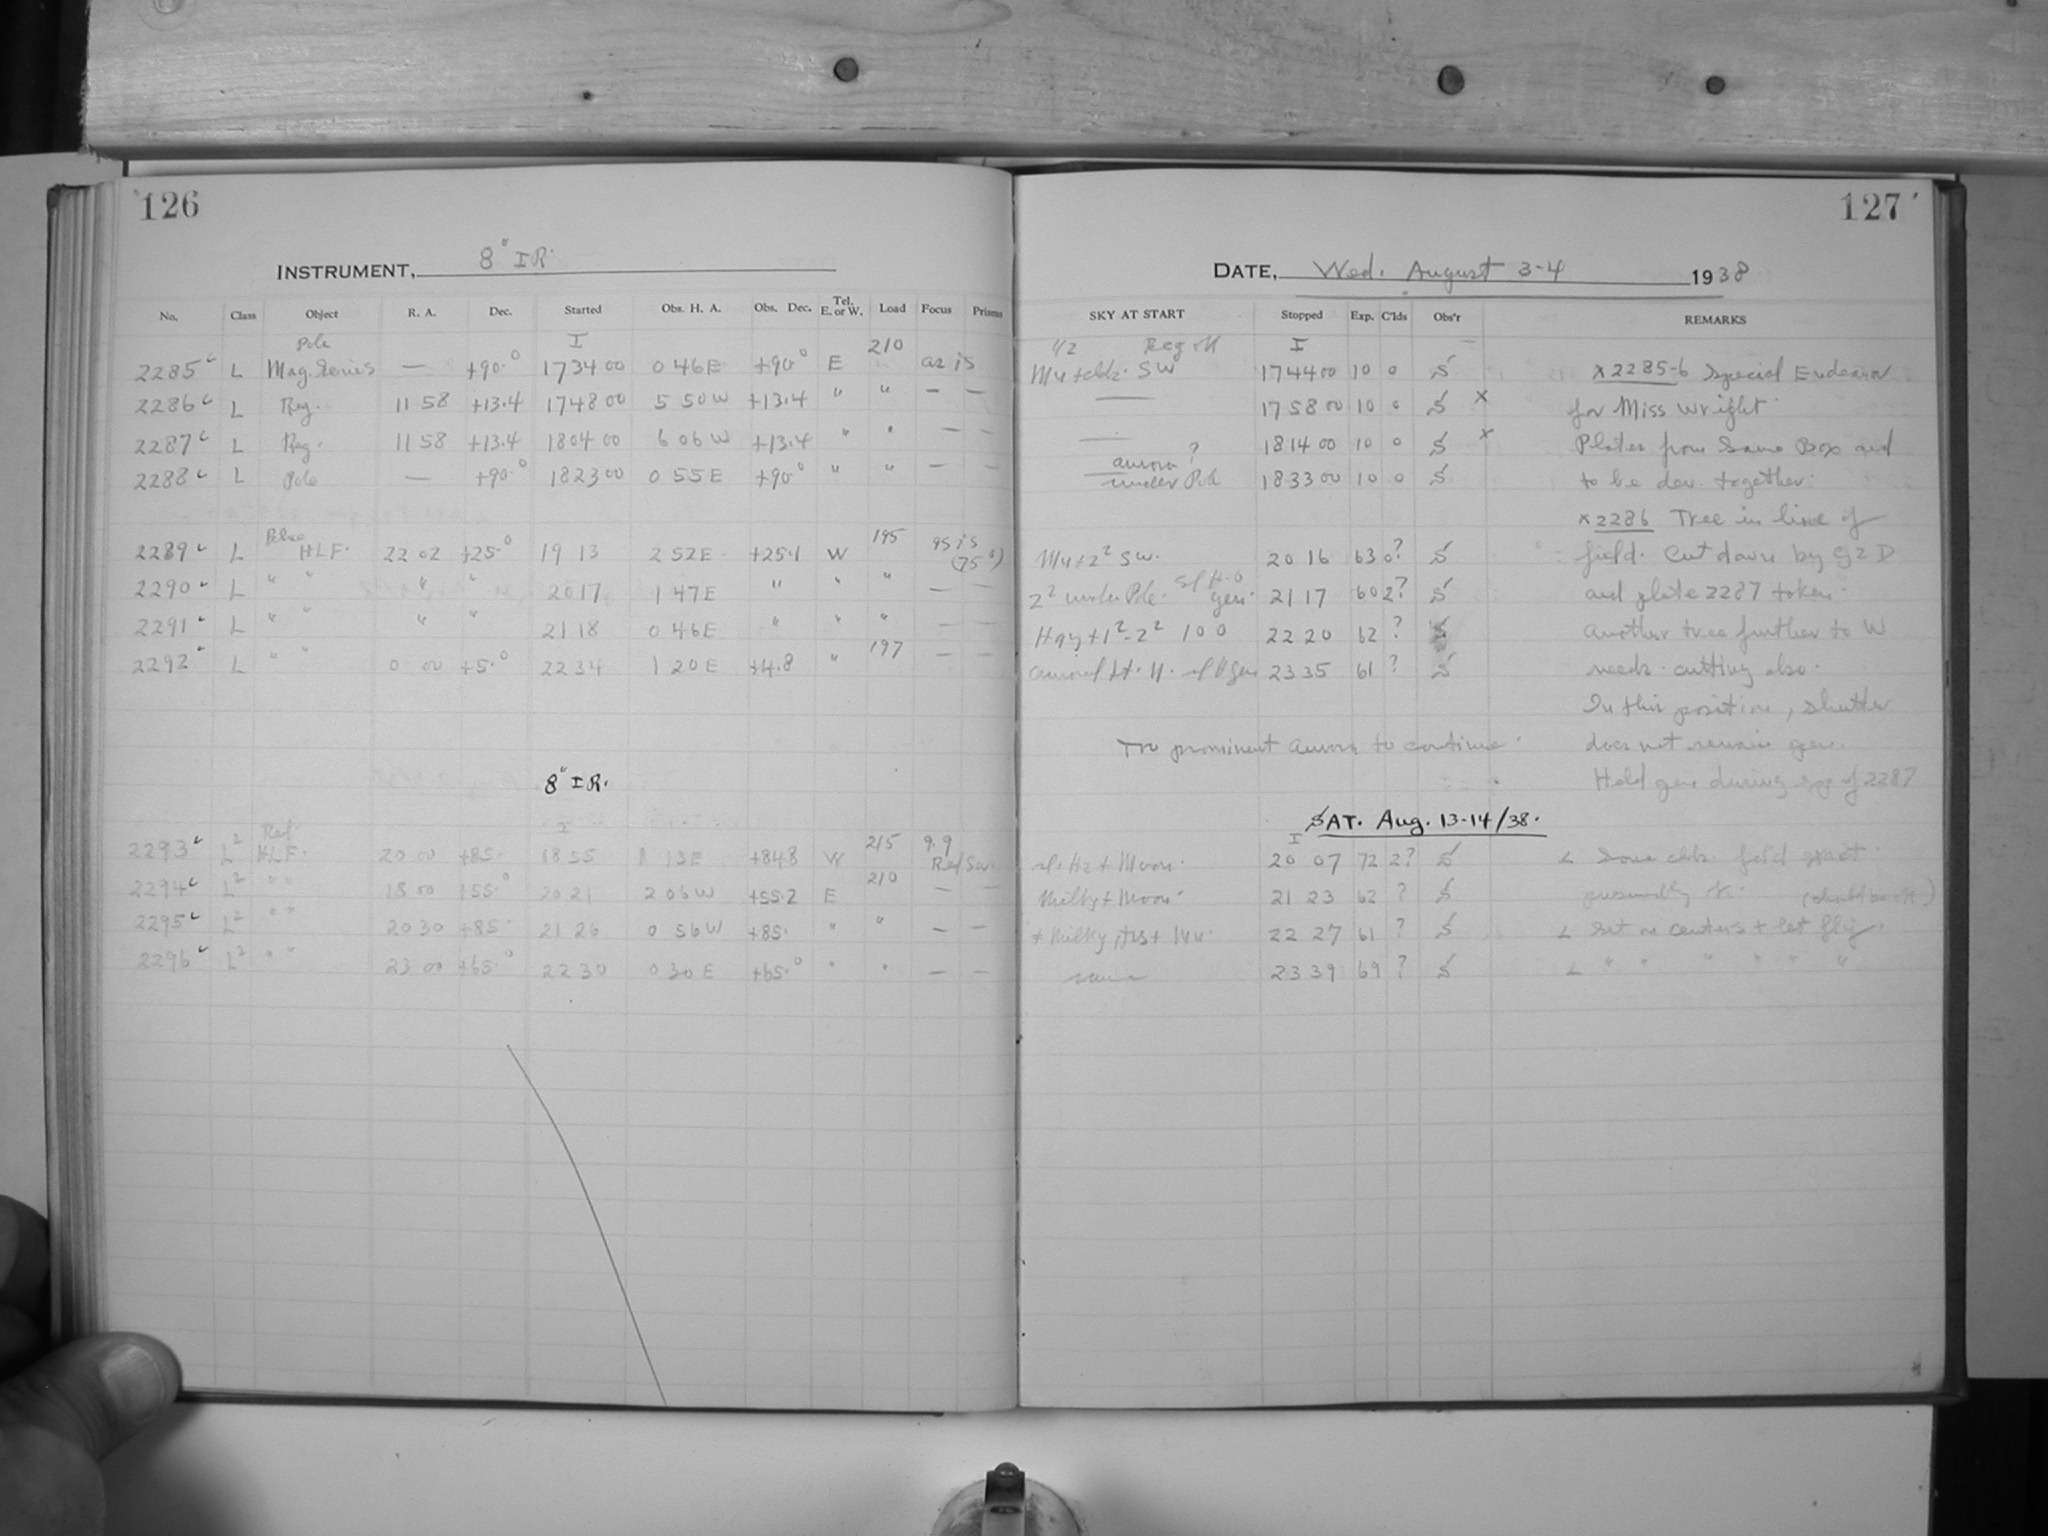 126
INSTRUMENT, 8" IR.
No. Class Object R. A. Dec. Started Obs. H. A. Obs. Dec. Tel. E. or W. Load Focus Prisms
Pole I 210
2285 L Mag. Series — +90.° 17 34 00 0 46 E +90° E as is
2286 L Reg. 11 58 +13.4 17 48 00 5 50 W +13.4 " " — —
2287 L Reg. 11 58 +13.4 18 04 00 6 06 W +13.4 " " — —
2288 L Pole — +90.° 18 23 00 0 55 E +90° " " — —
Blue 195 as is
2289 L HLF. 22 02 +25.° 19 13 2 52 E +25.1 W (75°)
2290 L " " " " 20 17 1 47 E " " " — —
2291 L " " " " 21 18 0 46 E " " " — —
2292 L " " 0 00 +5.° 22 34 1 20 E +4.8 " 197 — —
8" IR.
Red. I 215 9.9
2293 L² HLF. 20 00 +85. 18 55 1 13 E +84.8 W Red
2294 L² " " 18 00 +55.° 20 21 2 06 W +55.2 E 210 — —
2295 L² " " 20 30 +85. 21 26 0 56 W +85. " " — —
2296 L² " " 23 00 +65.° 22 30 0 30 E +65.° " " — —
127
DATE, Wed. August 3-4 1938
SKY AT START Stopped Exp. C'lds Obs'r REMARKS
I
SW 17 44 00 10 0 S x 2285-6 Special Endeavor
— 17 58 00 10 0 S x for Miss Wright.
— 18 14 00 10 0 S x Plates from Same Box and
aurora?
under Pole 18 33 00 10 0 S to be dev. together.
x 2286 Tree in line of
SW. 20 16 63 0? S field. Cut down by G2D
2² under Pole. 21 17 60 2? S and plate 2287 taken.
1²-2² 100 22 20 62 ? S another tree further to W
23 35 61 ? S needs cutting also.
In this position, shutter
Too prominent aurora to continue. does not remain open.
Held open during exp of 2287
SAT. Aug. 13-14/38.
I
+ Moon. 20 07 72 2? S Some clds. field exact
Milky + Moon. 21 23 62 ? S presumably ok.
+ Milky 22 27 61 ? S Set on centers + let fly.
same 23 39 69 ? S " " " " " "